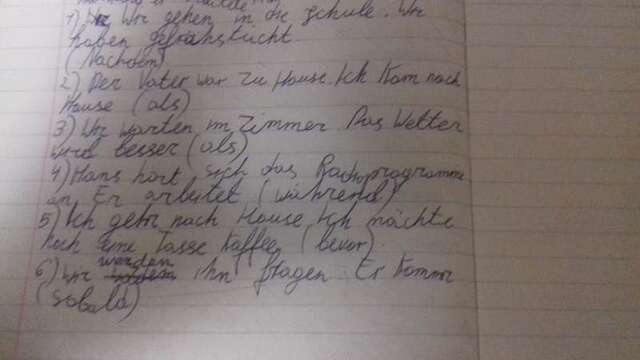 1) Wir gehen in die Schule. Wir
haben gefrühstückt
(Nachdem)
2) Der Vater war zu House. Ich kam nach
House (als)
3) Wir warten im Zimmer. Das Wetter
wird besser (als)
4) Hans hört sich das Radioprogramme
an Er arbeitet (während)
5) Ich gehe nach House. Ich möchte
noch eine Tasse Kaffee (bevor)
6) Wir werden ihn fragen. Er kommt
(sobald)